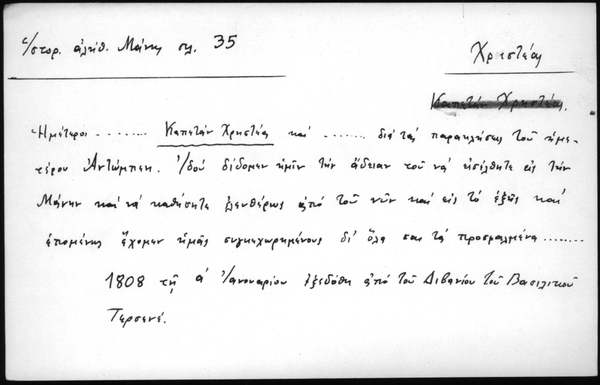 Ἱστορ. ἀλήθ. Μάνης σελ. 35
Χρηστέας
Καπετὰν Χρηστέας.
Ἡμέτεροι ........ Καπετὰν Χρηστέας καὶ ....... διὰ τὰς παρακλήσεις τοῦ ἡμε-
τέρου Ἀντώμπεη. Ἰδοὺ δίδομεν ἡμῖν τὴν ἄδειαν τοῦ νὰ εἰσέλθητε εἰς τὴν
Μάνην καὶ νὰ καθήσητε ἐλευθέρως ἀπὸ τοῦ νῦν καὶ εἰς τὸ ἑξῆς καὶ
ἑπομένως ἔχομεν ἡμᾶς συγκεχωρημένους δι' ὅλα σας τὰ προσφαλμένα ........
1808 τῇ α' Ἰανουαρίου ἐξεδόθη ἀπὸ τοῦ Διβανίου τοῦ Βασιλικοῦ
Τερσενέ.